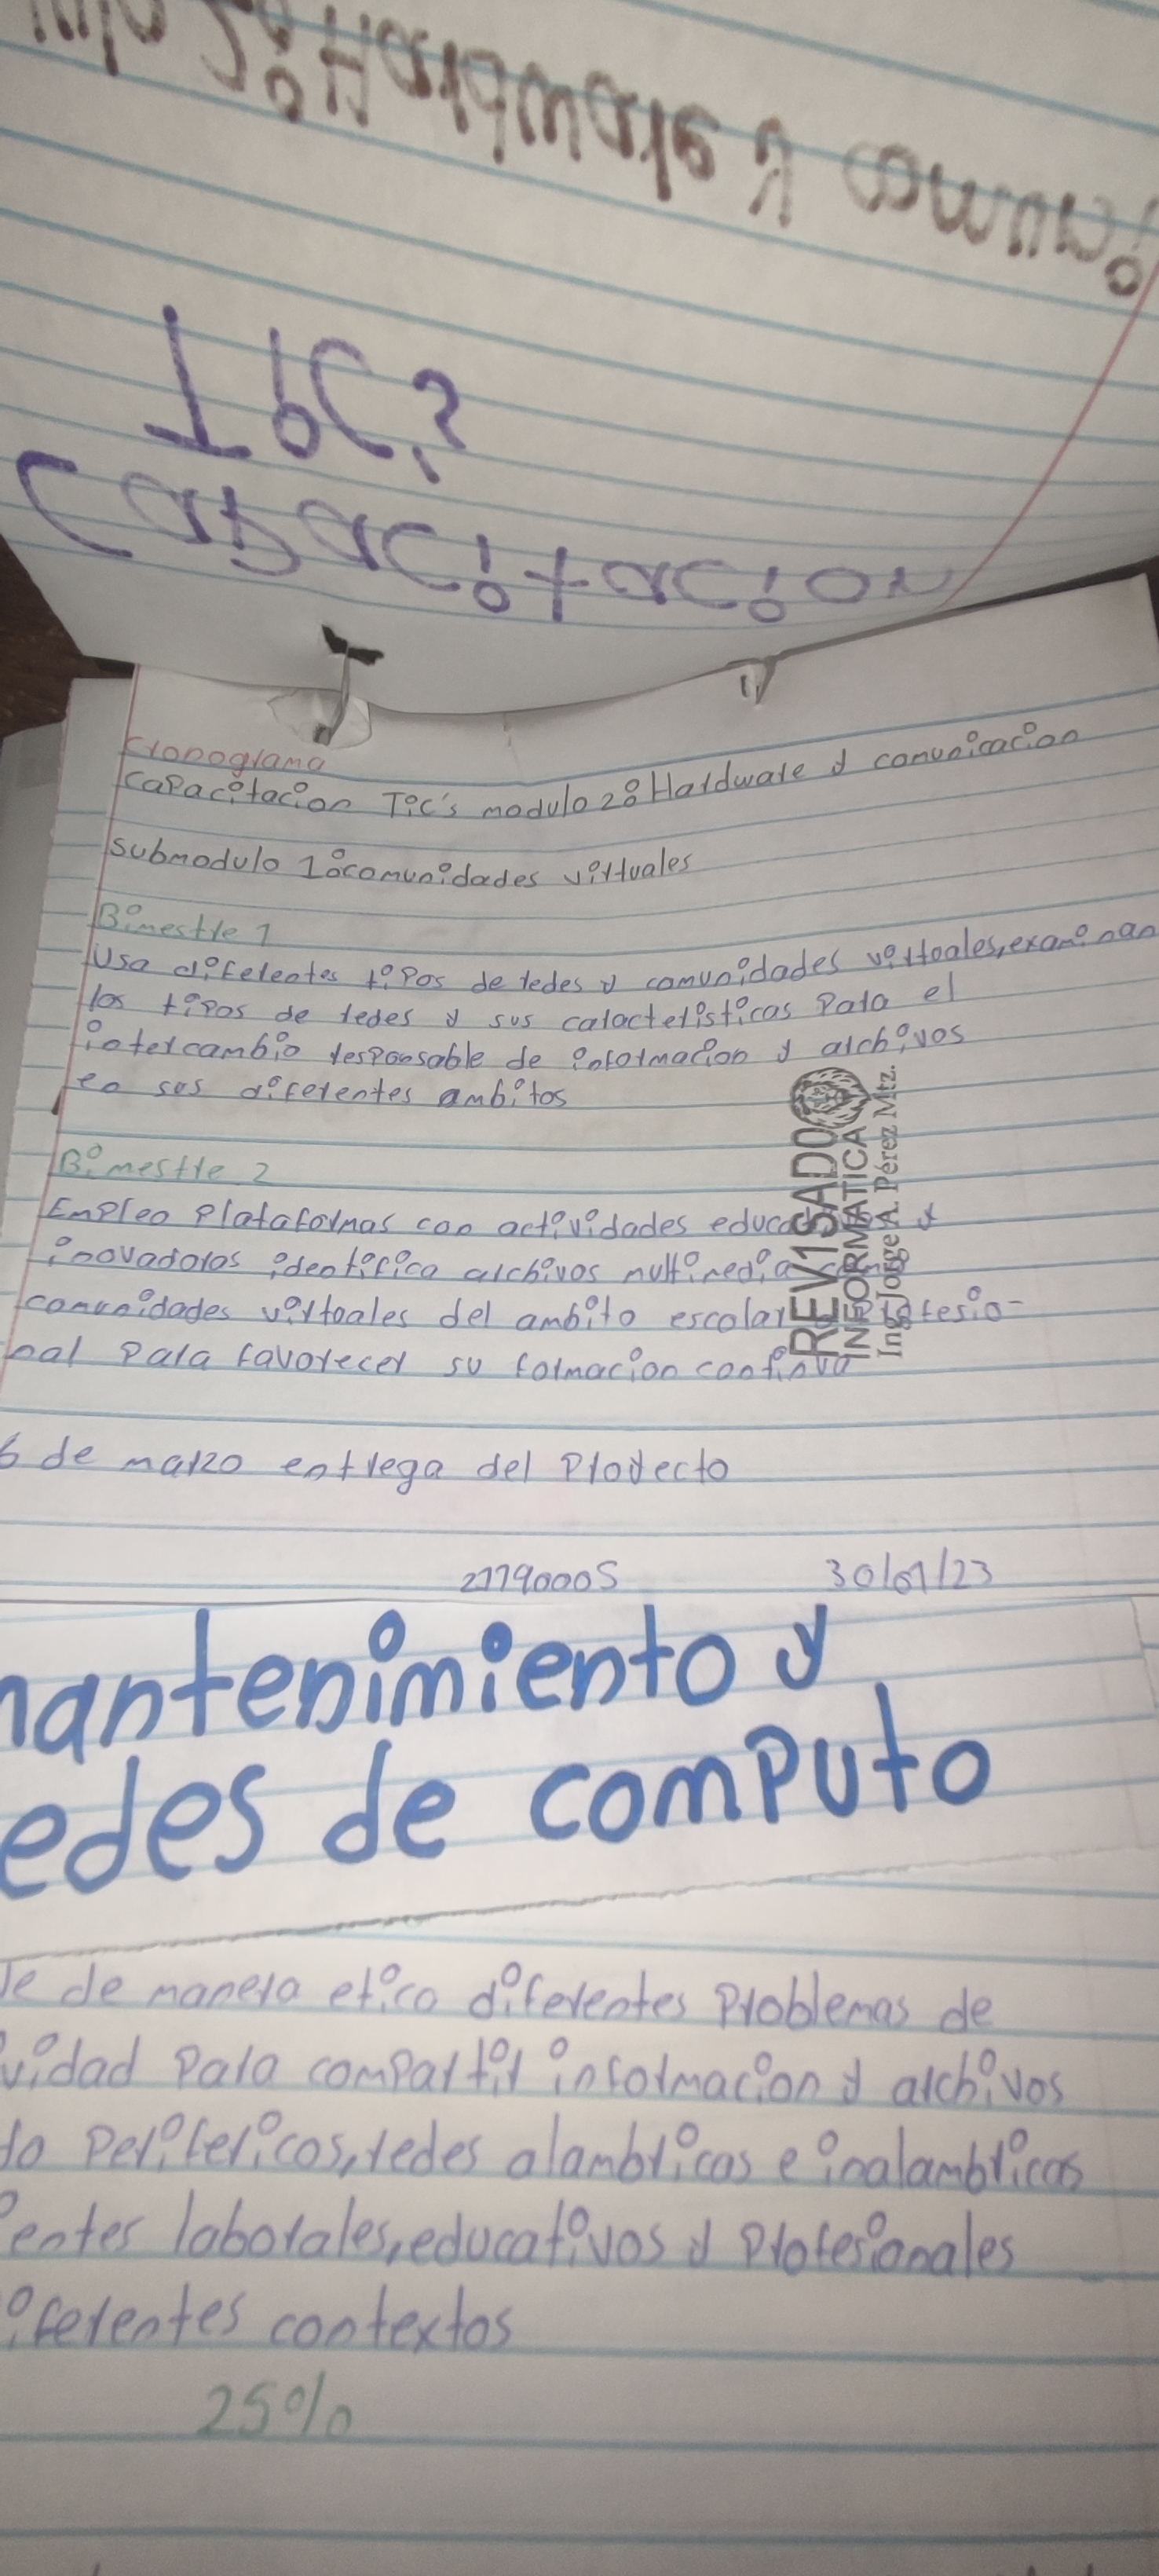 Hardware y comunica
Tic's
Capacitacion
Cronograma
Capacitacion Tic's modulo 2: Hardware y comunicacion
submodulo 1: comunidades virtuales
Bimestre 1
Usa diferentes tipos de redes y comunidades virtuales, examinan
los tipos de redes y sus caracteristicas para el
intercambio responsable de informacion y archivos
en sus diferentes ambitos
Bimestre 2
Empleo plataformas con actividades y
inovadoras identifica archivos multimedia
comunidades virtuales del ambito escolar profesio-
nal para favorecer su formacion continua
REVISADO
INFORMATICA
Ing. Jorge A. Pérez Mtz.
6 de marzo entrega del proyecto
21190005 30/01/23
mantenimiento y
edes de computo
de manera etica diferentes problemas de
vidad para compartir informacion y archivos
do perifericos, redes alambricas e inalambricas
entes laborales, educativos y profesionales
iferentes contextos
25%